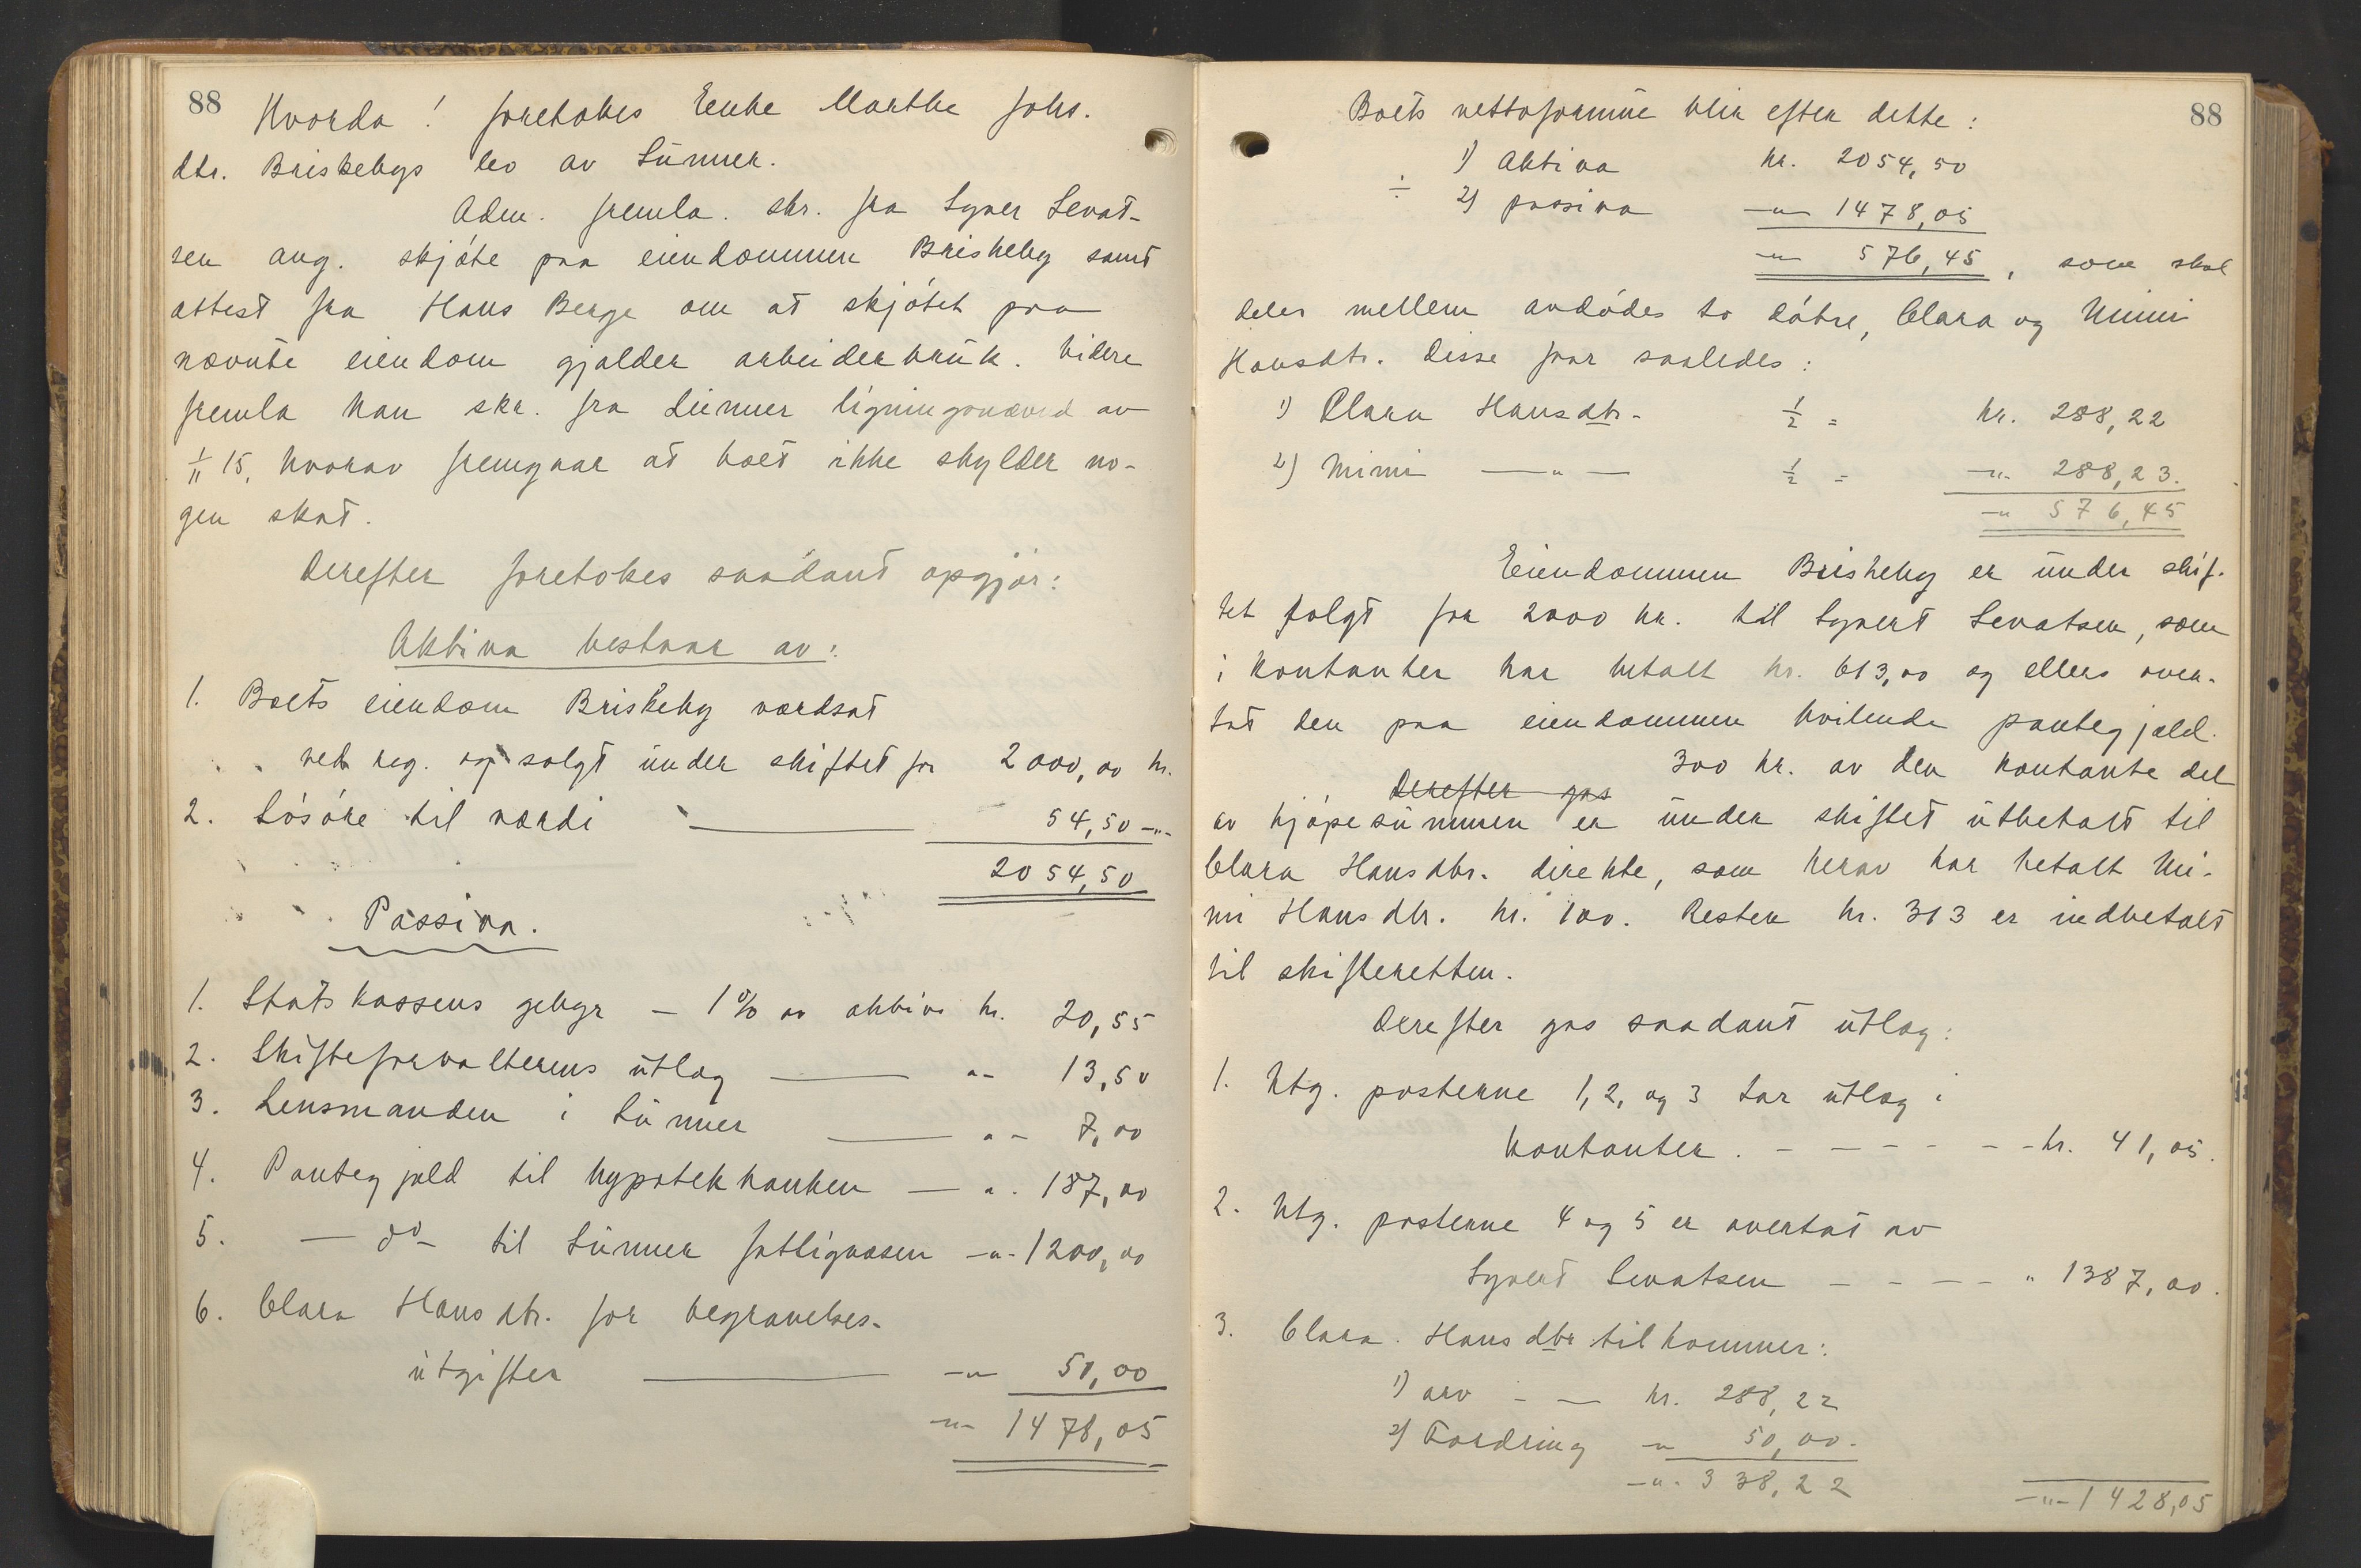 88
Hvorda! foretokes Enke Marthe Johs.
dtr. Briskebys bo av Lunner.
Adm. fremla. skr. fra Syver Sevat-
sen ang. skjøte paa eiendommen Briskeby samt
attest fra Hans Berge om at skjøtet paa
nævnte eiendom gjælder arbeiderbruk. Videre
fremla han skr. fra Lunner ligningsnævnd av
1/11 15, hvorav fremgaar at boet ikke skylder no-
gen skat.
Derefter foretokes saadant opgjør:
Aktiva bestaar av:
1. Boets eiendom Briskeby værdsat
ved reg. og solgt under skiftet for 2000,00 kr.
2. Løsøre til værdi — 54,50 -"-
2054,50
Passiva.
1. Statskassens gebyr – 1% av aktiva kr. 20,55
2. Skifteforvalterens utlæg — "- 13,50
3. Lensmanden i Lunner — "- 7,00
4. Pantegjæld til hypotekbanken — ". 187,00
5. — do – til Lunner fattigvæsen -"- 1200,00
6. Clara Hansdtr. for begravelses-
utgifter — -"- 50,00
-"- 1478,05
88
Boets nettoformue blir efter dette:
1) Aktiva kr. 2054,50
÷ 2) passiva -"- 1478,05
-"- 576,45, som skal
deles mellem avdødes to døtre, Clara og Mimi
Hansdtr. Disse faar saaledes:
1) Clara Hansdtr. 1/2 = kr. 288,22
2) Mimi —"— 1/2 = -"- 288,23.
-" 576,45
Eiendommen Briskeby er under skif-
tet solgt for 2000 kr. til Syvert Sevatsen, som
i kontanter har betalt kr. 613,00 og ellers over-
tat den paa eiendommen hvilende pantegjæld.
300 kr. av den kontante del
Derefter gas
av kjøpesummen er under skiftet utbetalt til
Clara Hansdtr. direkte, som herav har betalt Mi-
mi Hansdtr. kr. 100. Resten kr. 313 er indbetalt
til skifteretten.
Derefter gas saadant utlæg:
1. Utg. posterne 1, 2, og 3 tar utlæg i
kontanter. – – – – – – kr. 41,05.
2. Utg. posterne 4 og 5 er overtat av
Syvert Sevatsen – – – – " 1387,00.
3. Clara Hansdtr tilkommer:
1) arv – — kr. 288,22
2) Fordring -" 50,00.
-"- 338,22
-"- 1428,05